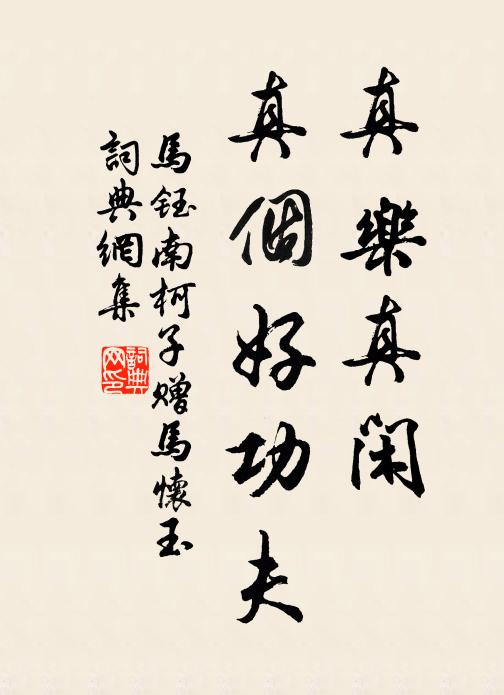 真樂真閑
真個好功夫
馬鈺南柯子贈馬懷玉
詞典網集
詞典网印